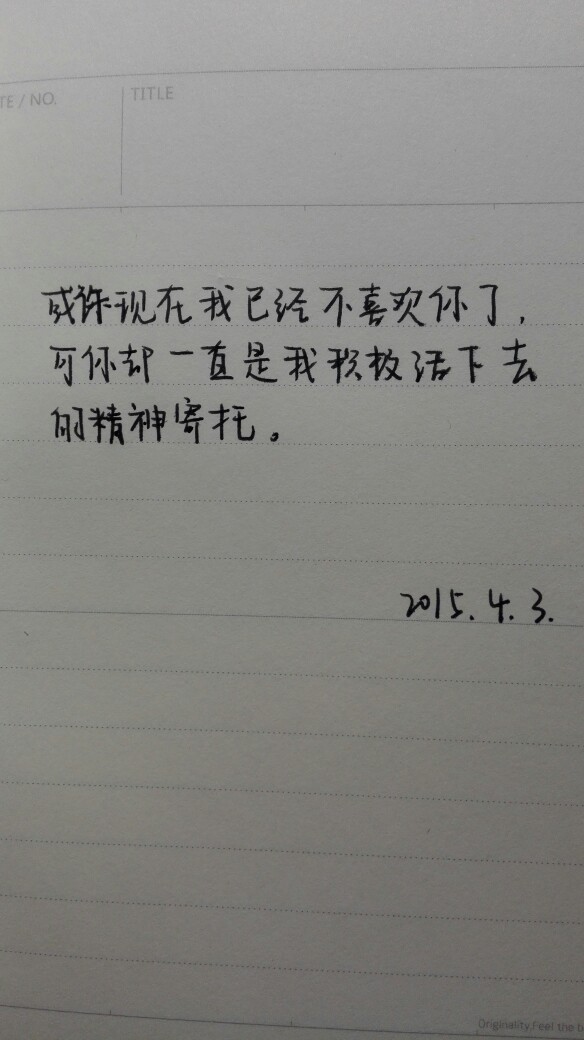 TE / NO.
TITLE
或许现在我已经不喜欢你了，
可你却一直是我积极活下去
的精神寄托。
2015.4.3.
Originality.Feel the b